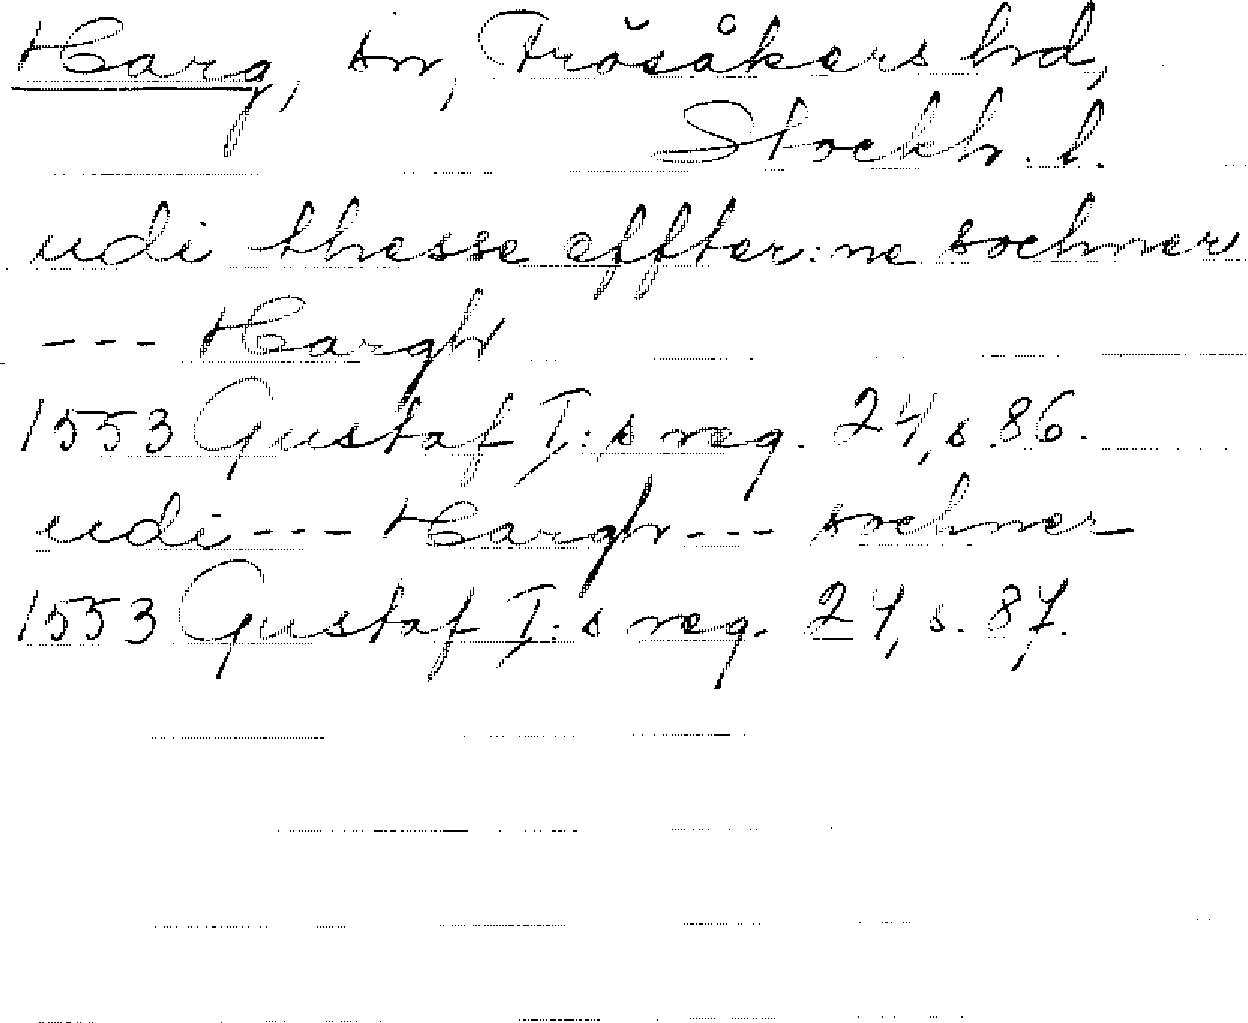 Harg, sn, Frösåkers hd,
Stockh. l.
udi thesse effter:ne sochner
--- Hargh
1553 Gustaf I:s reg. 24, s. 86.
udi --- Hargh --- sochner
1553 Gustaf I:s reg. 24, s. 87.